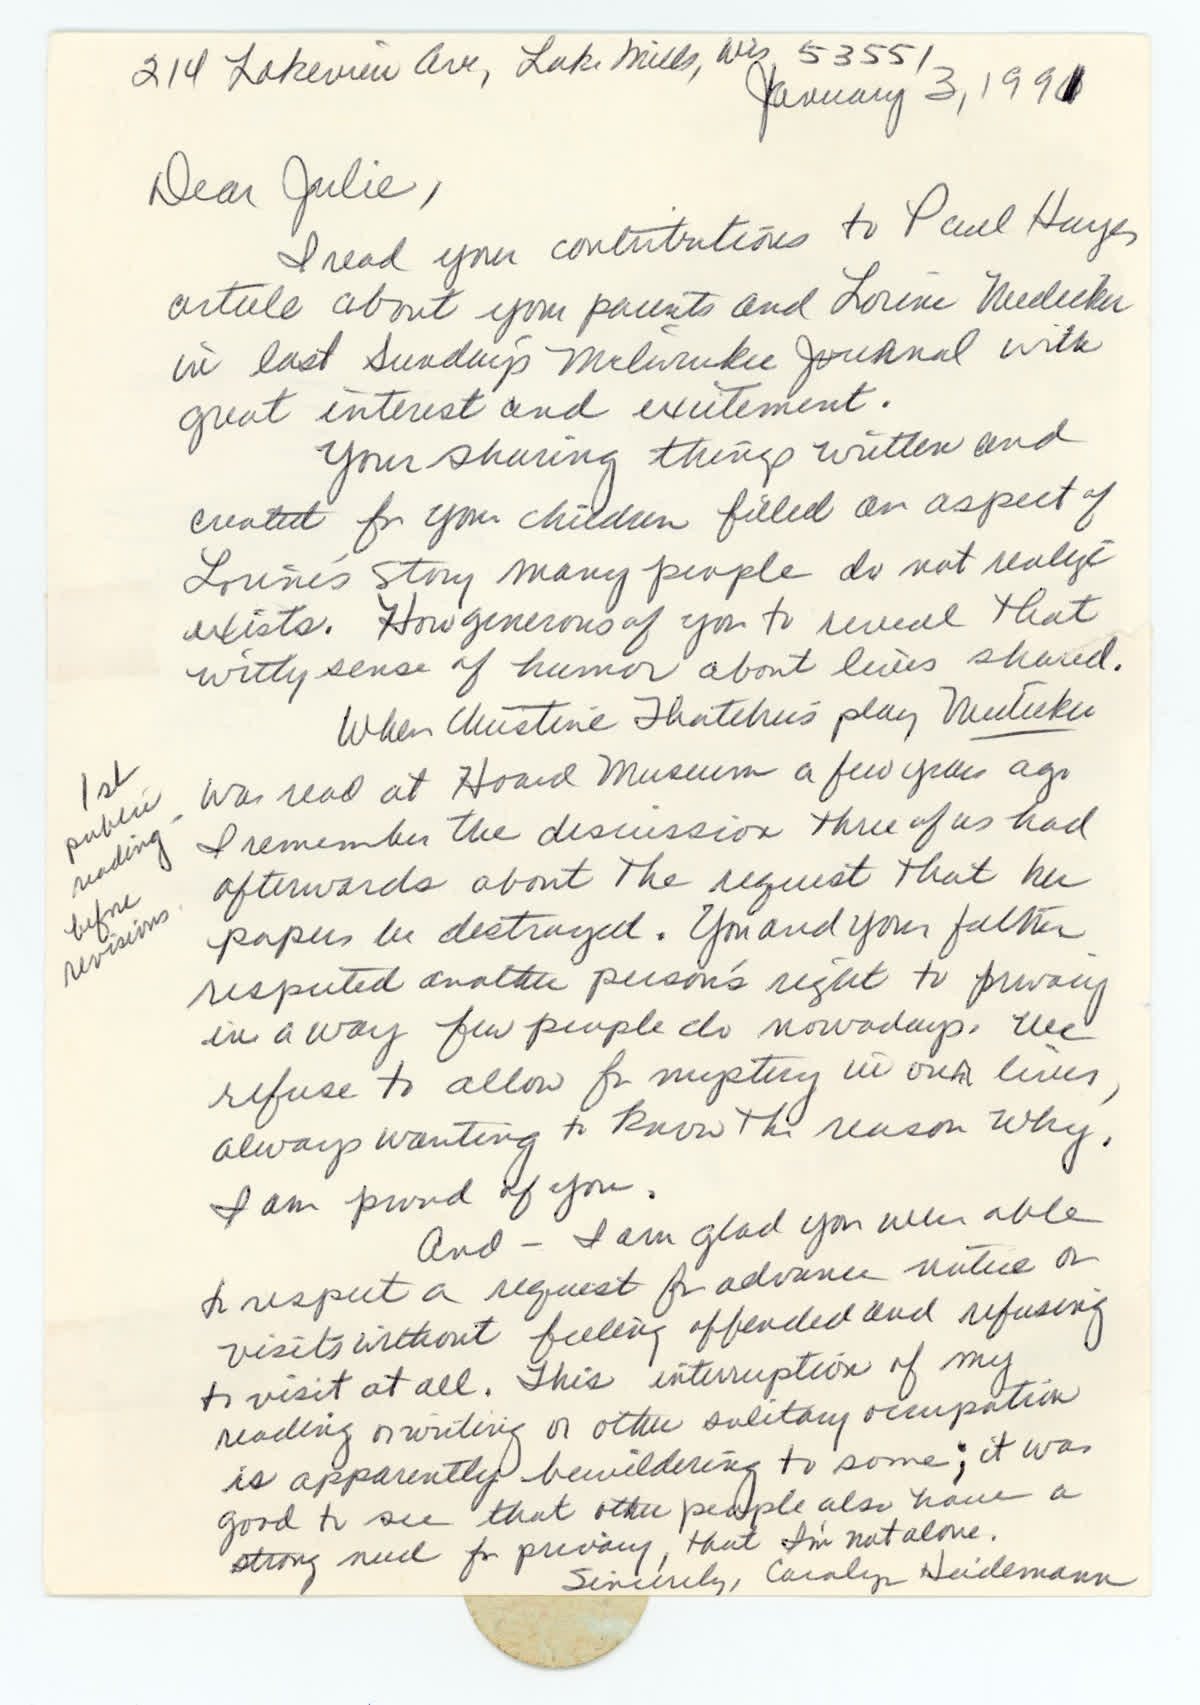 214 Lakeview Ave, Lake Mills, Wis 53551
January 3, 1991
Dear Julie,
I read your contributions to Paul Hayes
article about your parents and Lorine Niedecker
in last Sunday's Milwaukee Journal with
great interest and excitement.
Your sharing things written and
created for your children filled an aspect of
Lorine's story many people do not realize
exists. How generous of you to reveal that
witty sense of humor about lives shared.
When Christine Thatcher's play Niedecker
was read at Hoard Museum a few years ago
I remember the discussion three of us had
afterwards about the request that her
papers be destroyed. You and your father
respected another person's right to privacy
in a way few people do nowadays. We
refuse to allow for mystery in our lives,
always wanting to know the reason why.
I am proud of you.
And – I am glad you were able
to respect a request for advance notice on
visits without feeling offended and refusing
to visit at all. This interruption of my
reading or writing or other solitary occupation
is apparently bewildering to some; it was
good to see that other people also have a
strong need for privacy, that I'm not alone.
Sincerely, Carolyn Heidemann
1st
public
reading –
before
revisions.